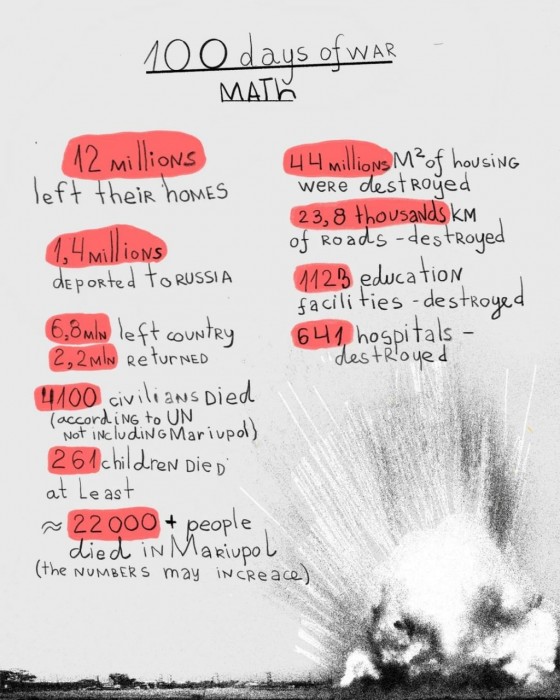 100 days of WAR
MATh
12 millions
left their homes
1,4 millions
deported to RUSSIA
6,8 mln left country
2,2 mln returned
4100 civilians died
(according to UN
not including Mariupol)
261 children died
at least
≈ 22 000 + people
died in Mariupol
(the numbers may increace)
44 millions M² of housing
were destroyed
23,8 thousands KM
of roads - destroyed
1123 education
facilities - destroyed
641 hospitals -
destroyed